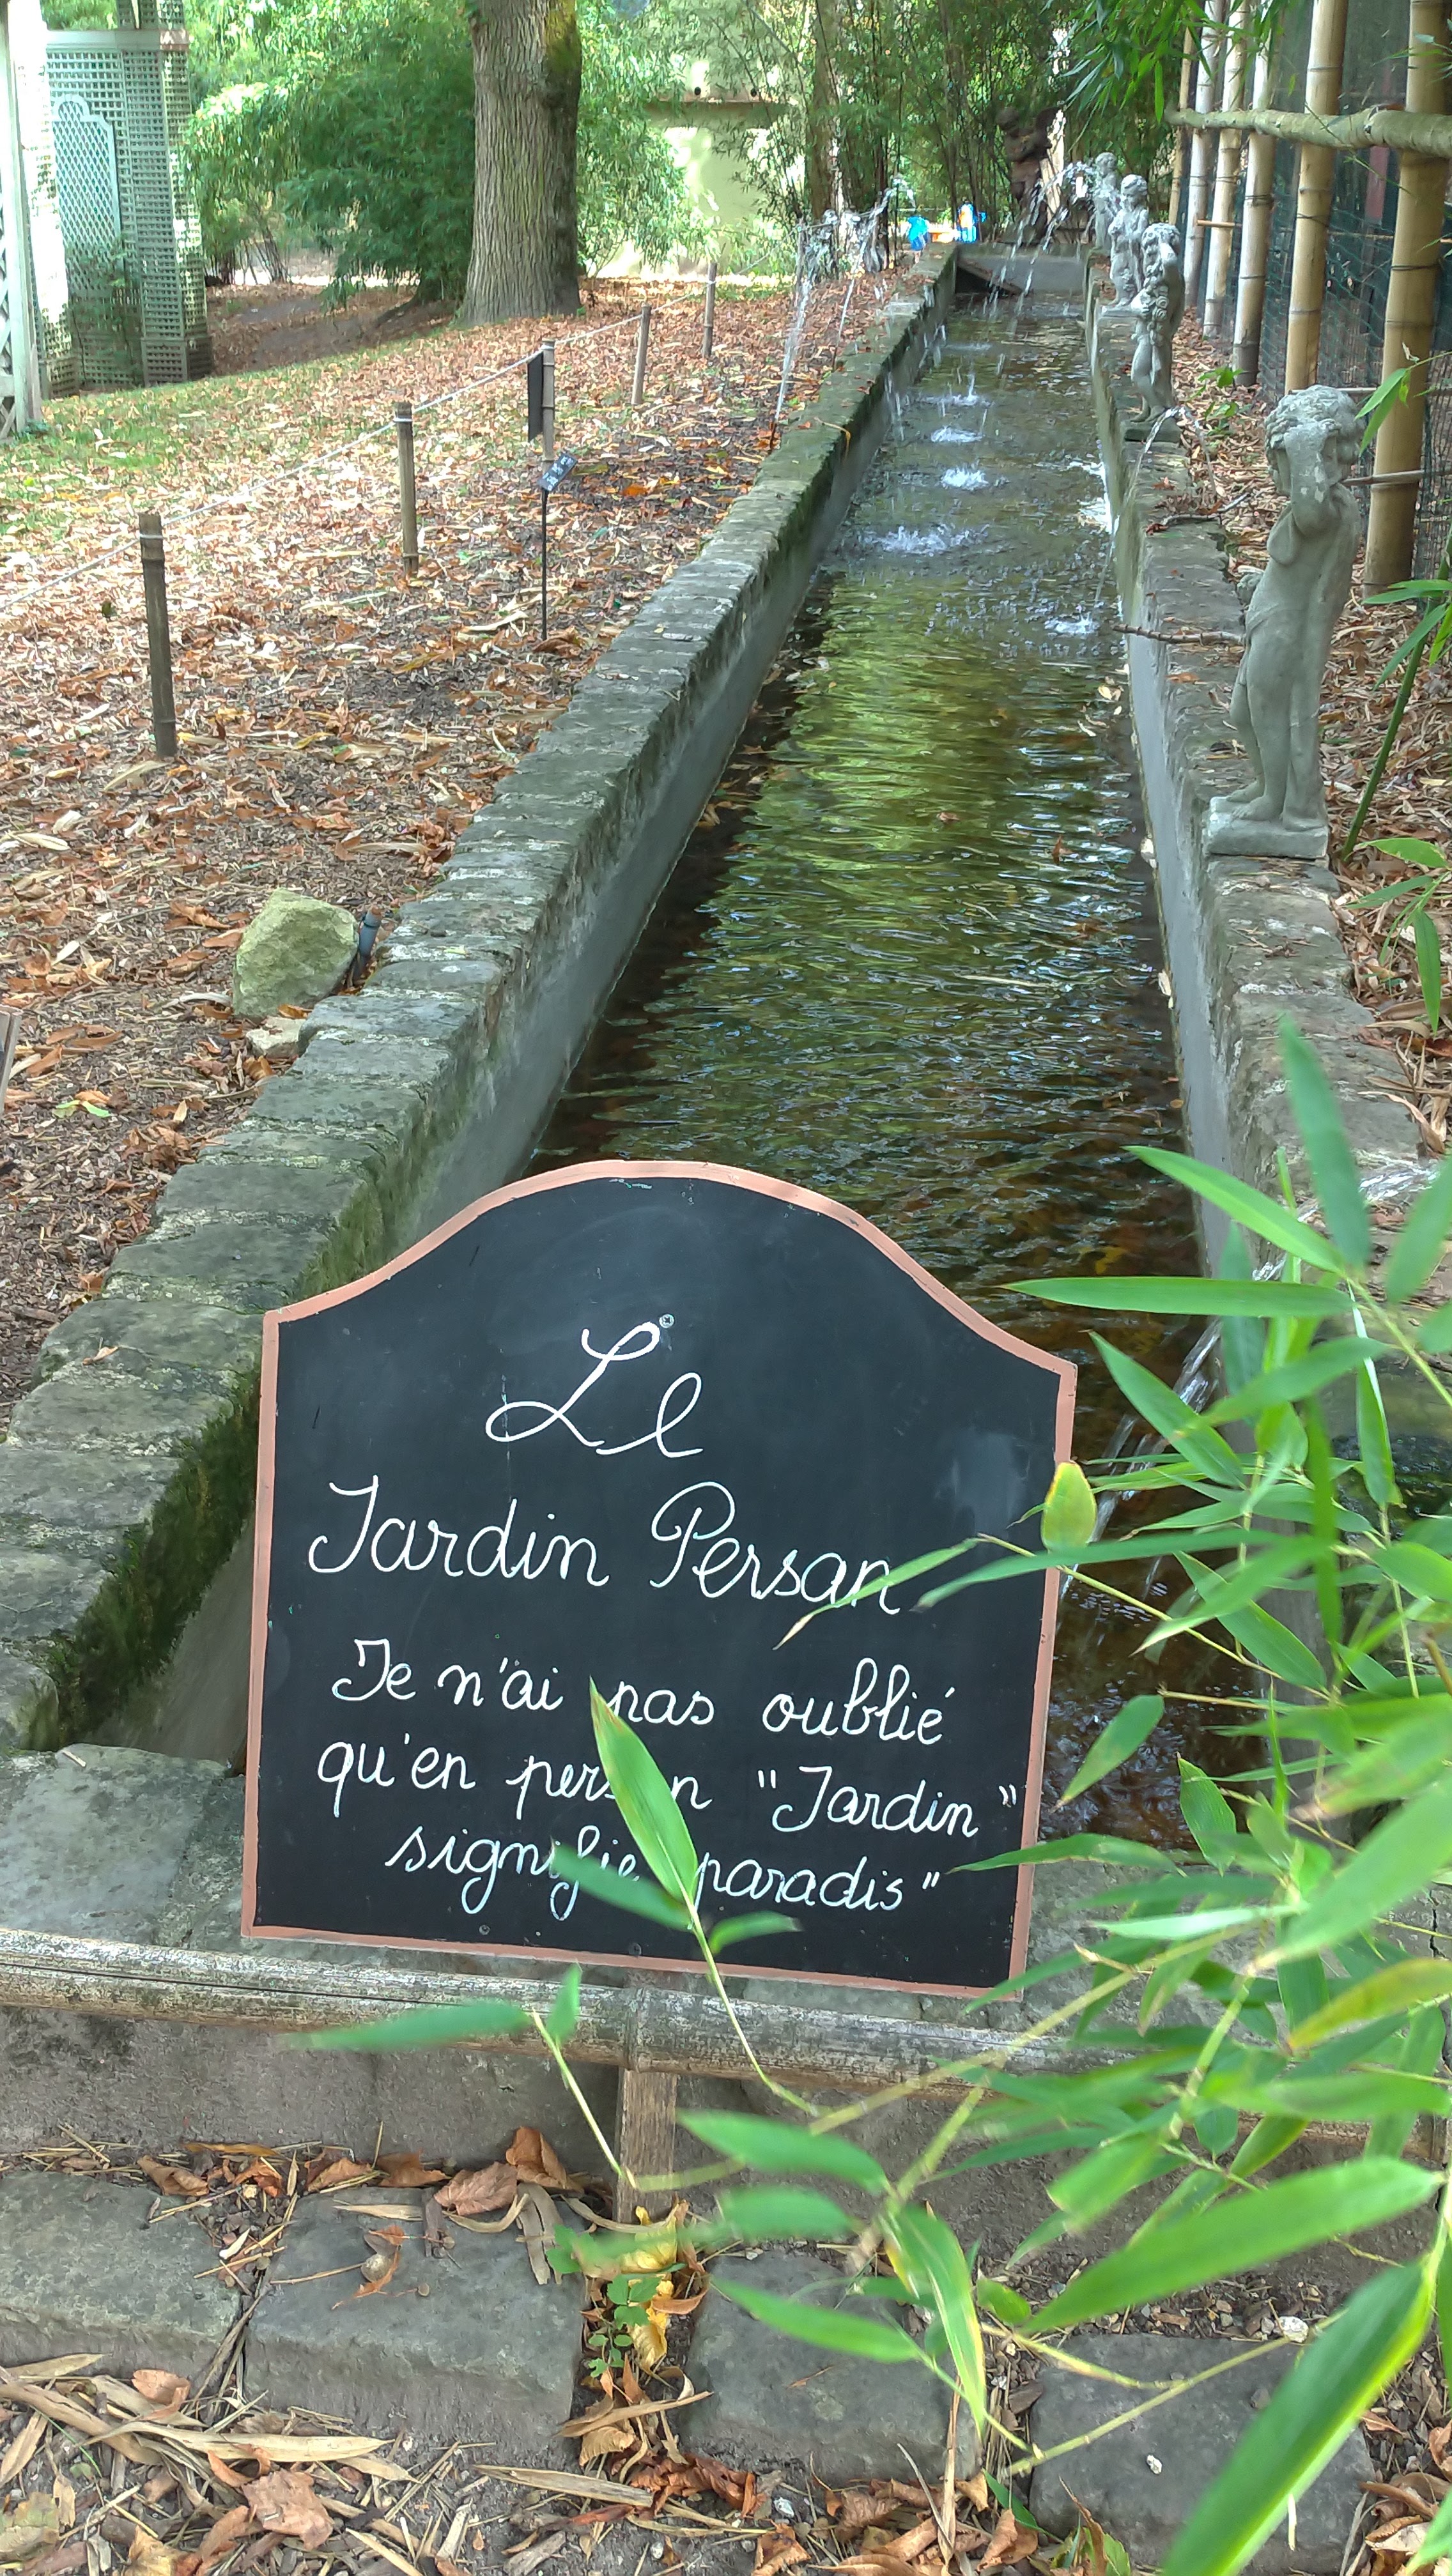 Le
Jardin Persan
Je n'ai pas oublié
qu'en persan "Jardin"
signifie paradis"